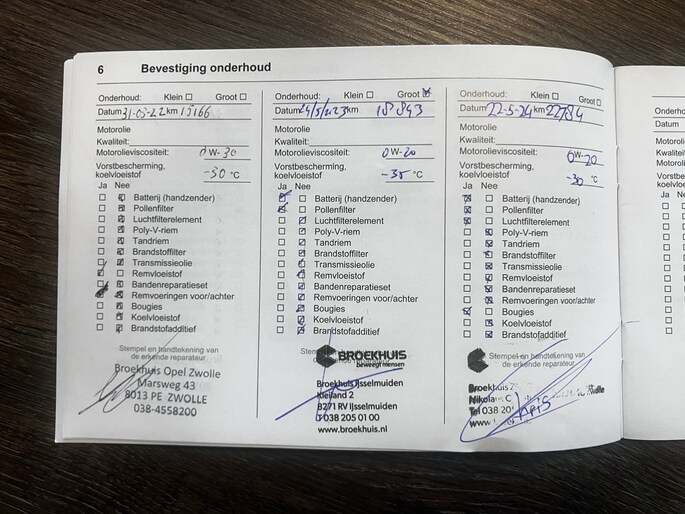 6 Bevestiging onderhoud
Onderhoud: Klein Groot
Datum 31-05-22 km 15166
Motorolie
Kwaliteit:
Motorolieviscositeit: 0W-30
Vorstbescherming,
koelvloeistof -30 °C
Ja Nee
Batterij (handzender)
Pollenfilter
Luchtfilterelement
Poly-V-riem
Tandriem
Brandstoffilter
Transmissieolie
Remvloeistof
Bandenreparatieset
Remvoeringen voor/achter
Bougies
Koelvloeistof
Brandstofadditief
Stempel en handtekening van
de erkende reparateur
Broekhuis Opel Zwolle
Marsweg 43
8013 PE ZWOLLE
038-4558200
Onderhoud: Klein Groot
Datum 24/5/2023 km 18893
Motorolie
Kwaliteit:
Motorolieviscositeit: 0W-20
Vorstbescherming,
koelvloeistof -35 °C
Ja Nee
Batterij (handzender)
Pollenfilter
Luchtfilterelement
Poly-V-riem
Tandriem
Brandstoffilter
Transmissieolie
Remvloeistof
Bandenreparatieset
Remvoeringen voor/achter
Bougies
Koelvloeistof
Brandstofadditief
Stempel en
BROEKHUIS
beweegt mensen
de erkende reparateur
Broekhuis IJsselmuiden
Kleiland 2
8271 RV IJsselmuiden
T 038 205 01 00
www.broekhuis.nl
Onderhoud: Klein Groot
Datum 22-5-24 km 22784
Motorolie
Kwaliteit:
Motorolieviscositeit: 0W-20
Vorstbescherming,
koelvloeistof -30 °C
Ja Nee
Batterij (handzender)
Pollenfilter
Luchtfilterelement
Poly-V-riem
Tandriem
Brandstoffilter
Transmissieolie
Remvloeistof
Bandenreparatieset
Remvoeringen voor/achter
Bougies
Koelvloeistof
Brandstofadditief
Stempel en handtekening van
de erkende reparateur
Broekhuis
Tel 038
www
Onderho
Datum
Motorolie
Kwaliteit:
Motorolie
Vorstbes
koelvloei
Ja Nee